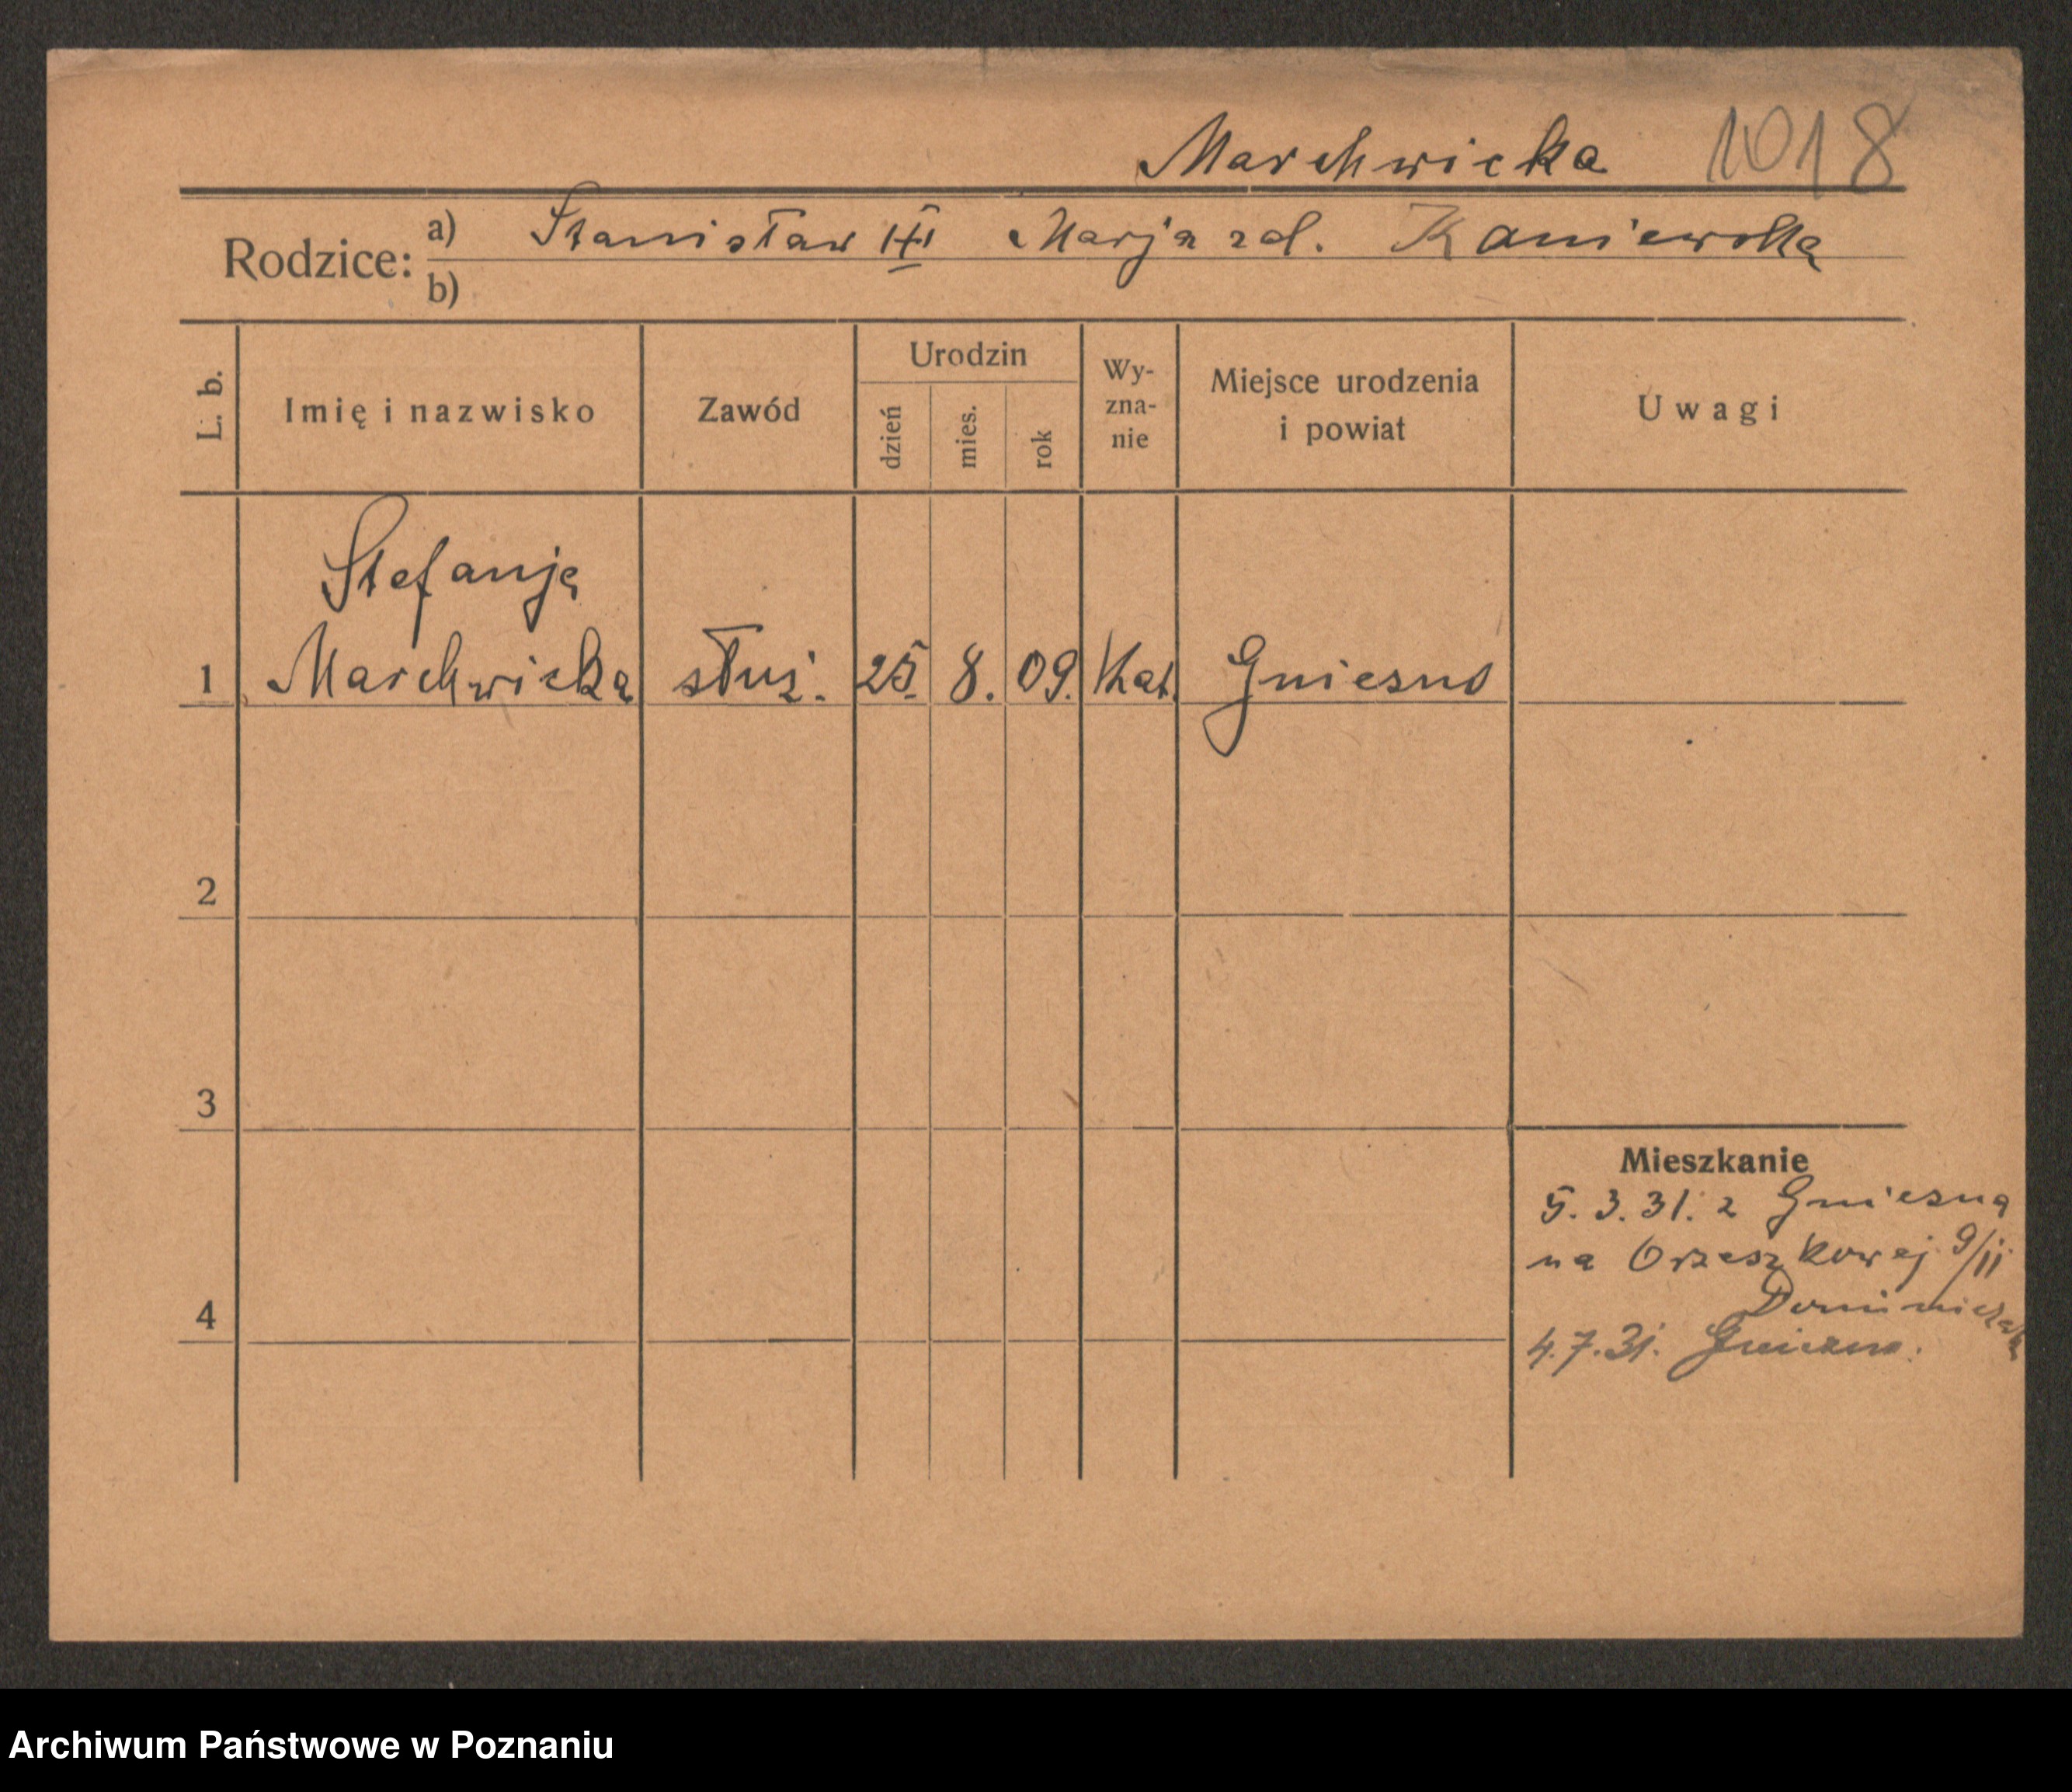 Marchwicka 1018
Rodzice: a) Stanisław i Marja zd. Kaniewska
b)
L. b. Imię i nazwisko Zawód Urodzin dzień mies. rok Wy-zna-nie Miejsce urodzenia i powiat Uwagi
Stefanja
1 Marchwicka służ. 25. 8. 09. Kat. Gniezno
2
3
Mieszkanie
5. 3. 31. z Gniezna
na Orzeszkowej 9/II
4
4.7.31. Gniezno.
Archiwum Państwowe w Poznaniu